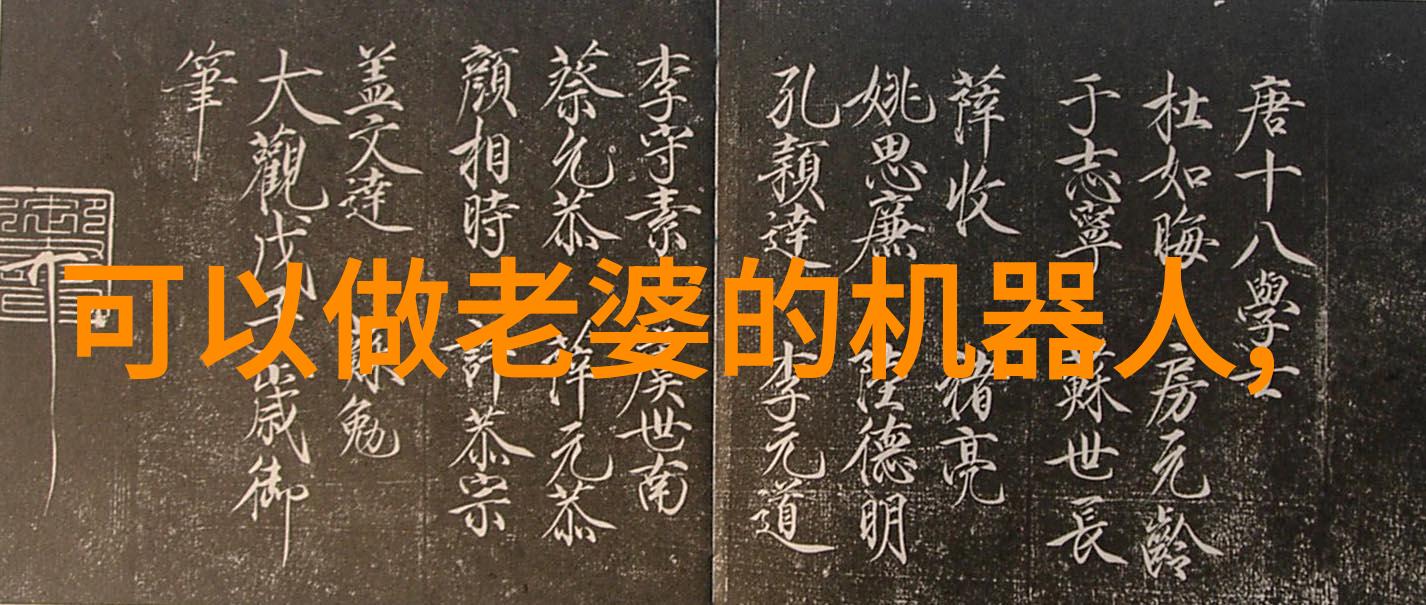 唐十八學士
杜如晦 房元齡
于志寧 蘇世長
薛收 褚亮
姚思廉 陸德明
孔穎達 李元道
李守素 虞世南
蔡允恭 薛元恭
顏相時 許恭宗
盖文達 勉
大觀戊子歲御
筆
可以做老婆的机器人,